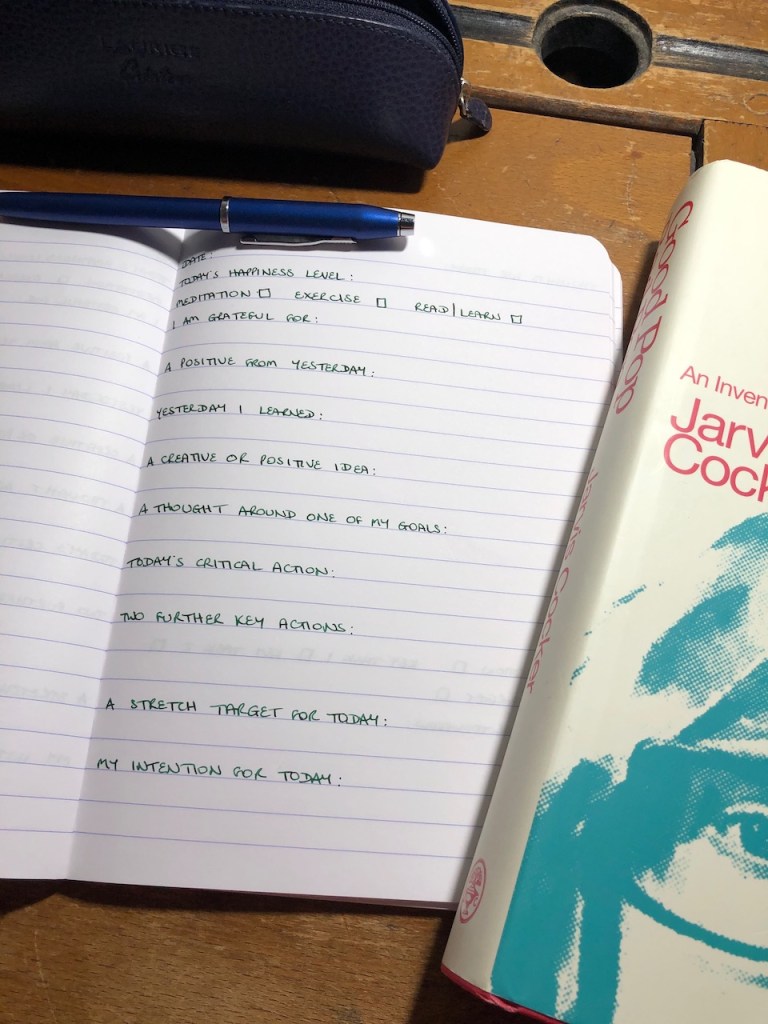 DATE:
TODAY'S HAPPINESS LEVEL:
MEDITATION EXERCISE READ/LEARN
I AM GRATEFUL FOR:
A POSITIVE FROM YESTERDAY:
YESTERDAY I LEARNED:
A CREATIVE OR POSITIVE IDEA:
A THOUGHT AROUND ONE OF MY GOALS:
TODAY'S CRITICAL ACTION:
TWO FURTHER KEY ACTIONS:
A STRETCH TARGET FOR TODAY:
MY INTENTION FOR TODAY:
Good Pop
Jarvis Cocker
An Inven
Jarv
Cock